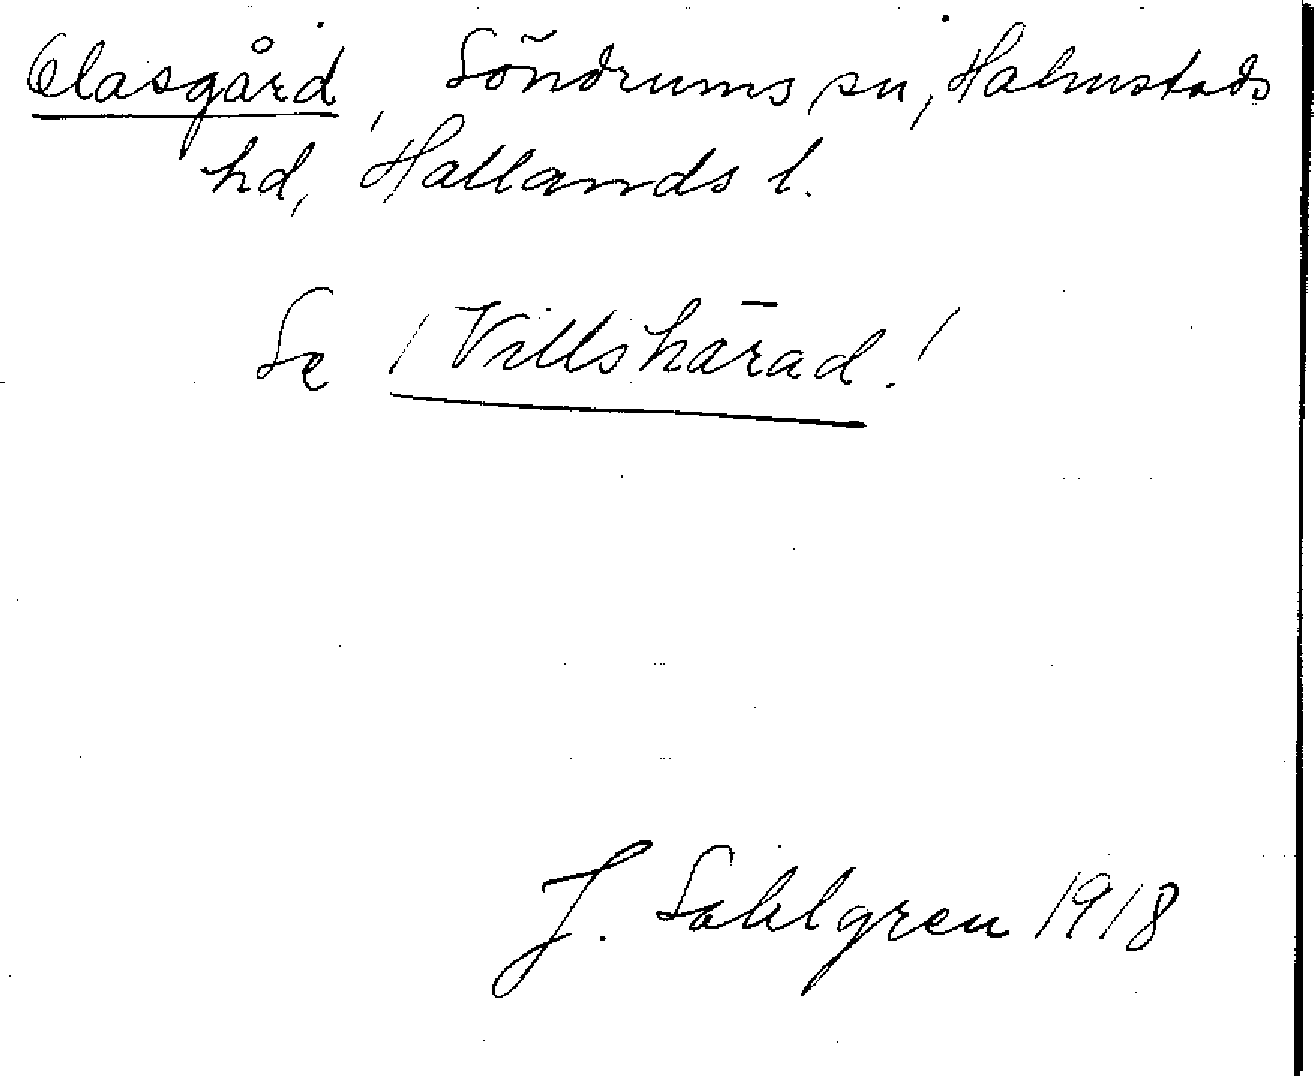 Clasgård, Söndrums sn, Halmstads
hd, Hallands l.
Se ! Villshärad !
J. Sahlgren 1918